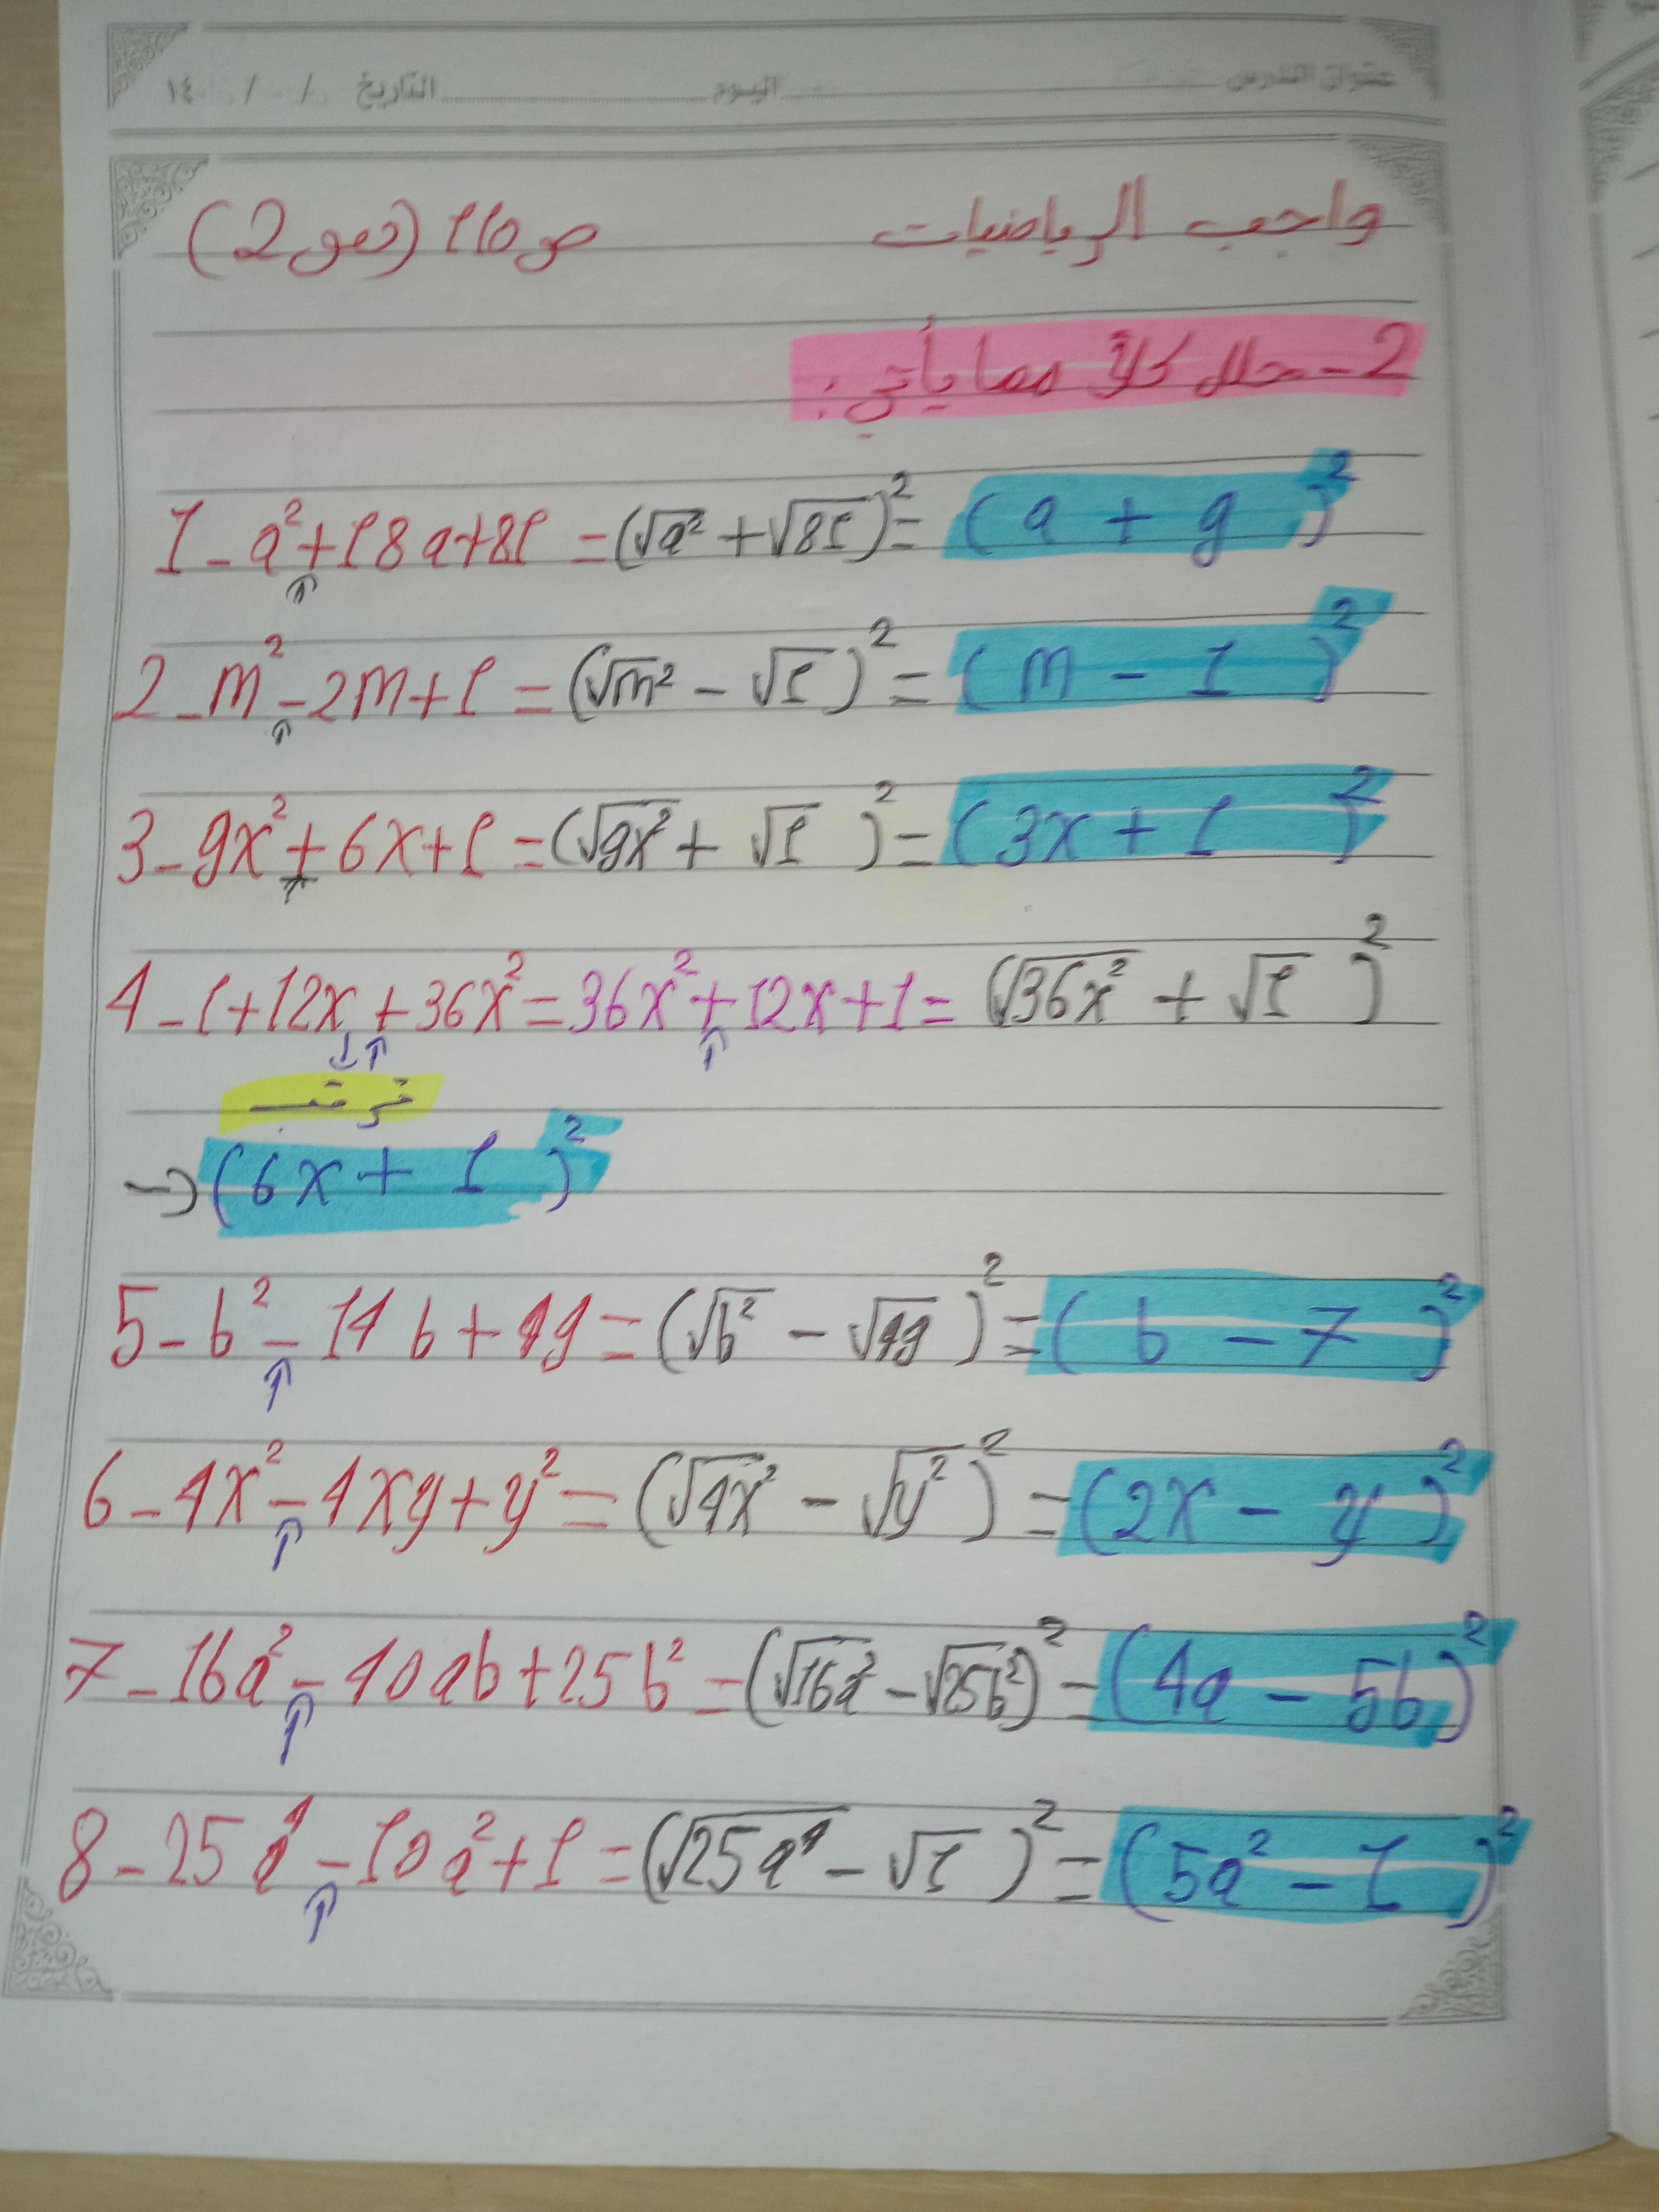 عنوان الدرس اليوم التاريخ / / ١٤
واجب الرياضيات ص 110 (2 و
2 - حلل كلاً مما يأتي :
1 - a² + 18a + 81 = (√a² + √81)² = (a + 9)²
2 - m² - 2m + 1 = (√m² - √1)² = (m - 1)²
3 - 9x² + 6x + 1 = (√9x² + √1)² = (3x + 1)²
4 - 1 + 12x + 36x² = 36x² + 12x + 1 = (√36x² + √1)²
نرتب
→ (6x + 1)²
5 - b² - 14b + 49 = (√b² - √49)² = (b - 7)²
6 - 4x² - 4xy + y² = (√4x² - √y²)² = (2x - y)²
7 - 16a² - 40ab + 25b² = (√16a² - √25b²)² = (4a - 5b)²
8 - 25a⁴ - 10a² + 1 = (√25a⁴ - √1)² = (5a² - 1)²